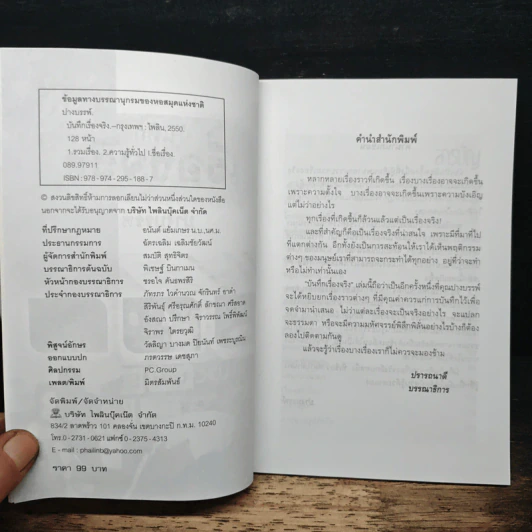 ข้อมูลทางบรรณานุกรมของหอสมุดแห่งชาติ
ปางบรรพ์.
บันทึกเรื่องจริง.--กรุงเทพฯ : ไพลิน, 2550.
128 หน้า
1.รวมเรื่อง. 2.ความรู้ทั่วไป I.ชื่อเรื่อง.
089.97911
ISBN : 978-974-295-188-7
© สงวนลิขสิทธิ์ห้ามการลอกเลียนไม่ว่าส่วนหนึ่งส่วนใดของหนังสือ
นอกจากจะได้รับอนุญาตจาก บริษัท ไพลินบุ๊คเน็ต จำกัด
ที่ปรึกษากฎหมาย อนันต์ แย้มเกษร น.บ.,น.ม.
ประธานกรรมการ ฉัตรเฉลิม เฉลิมชัยวัฒน์
ผู้จัดการสำนักพิมพ์ สมบัติ สุทธิจิตร
บรรณาธิการต้นฉบับ พิเชษฐ์ ปิ่นกาเมน
หัวหน้ากองบรรณาธิการ ชรอใจ คันธพรสิริ
ประจำกองบรรณาธิการ ภัทรภร จักรินทร์
จิราพร ไตรยวุฒิ
พิสูจน์อักษร
ออกแบบปก ภรตวรรษ เดชสุภา
ศิลปกรรม PC.Group
เพลต/พิมพ์ มิตรสัมพันธ์
จัดพิมพ์/จัดจำหน่าย
บริษัท ไพลินบุ๊คเน็ต จำกัด
634/2 ลาดพร้าว 101 คลองจั่น เขตบางกะปิ ก.ท.ม. 10240
โทร.0-2731-0621 แฟกซ์ 0-2375-4313
E - mail : phailinb@yahoo.com
ราคา 99 บาท
คำนำสำนักพิมพ์
หลากหลายเรื่องราวที่เกิดขึ้น เรื่องบางเรื่องอาจจะเกิดขึ้น
เพราะความตั้งใจ บางเรื่องอาจจะเกิดขึ้นเพราะความบังเอิญ
แต่ไม่ว่าอย่างไร
ทุกเรื่องที่เกิดขึ้นก็ล้วนแล้วแต่เป็นเรื่องจริง!
และที่สำคัญก็คือเรื่องจริงที่น่าสนใจ เพราะมีที่มาที่ไป
ที่แตกต่างกัน อีกทั้งยังเป็นการสะท้อนให้เราได้เห็นพฤติกรรม
ต่างๆ ของมนุษย์เราที่สามารถจะกระทำได้ทุกอย่าง อยู่ที่ว่าจะทำ
หรือไม่ทำเท่านั้นเอง
'บันทึกเรื่องจริง' เล่มนี้ถือว่าเป็นอีกครั้งหนึ่งที่คุณปางบรรพ์
จะได้หยิบยกเรื่องราวต่างๆ ที่มีคุณค่าควรแก่การบันทึกไว้เพื่อ
จดจำมานำเสนอ ไม่ว่าแต่ละเรื่องจะเป็นจริงอย่างไร จะแปลก
จะธรรมดา หรือจะมีความมหัศจรรย์พิลึกพิลั่นอย่างไรบ้างก็ต้อง
ลองไปติดตามกันดู
แล้วจะรู้ว่าเรื่องบางเรื่องเราก็ไม่ควรจะมองข้าม
ปรารถนาดี
บรรณาธิการ